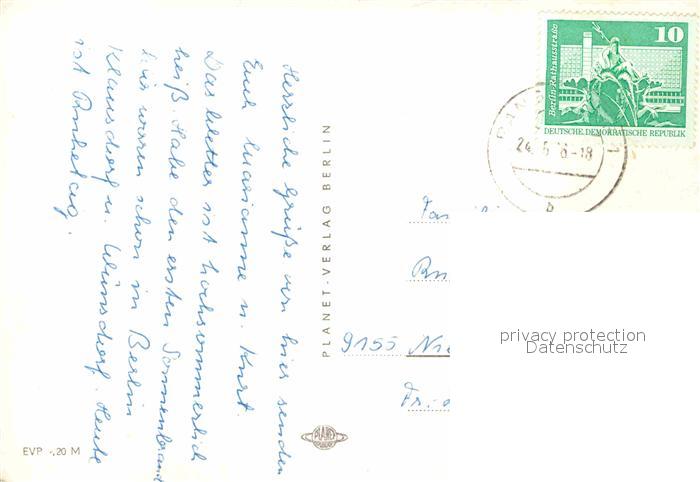 Herrliche Grüße von hier senden
Euch Marianne u. Kurt.
Das Wetter ist hochsommerlich
heiß. Habe den ersten Sonnenbrand
Wir waren schon in Berlin
Klausdorf u. Wünsdorf. Heute
ist Ruhetag.
PLANET-VERLAG BERLIN
EVP -,20 M
PLANET
10
Berlin-Rathausstraße
DEUTSCHE DEMOKRATISCHE REPUBLIK
-18
b
9155
privacy protection
Datenschutz